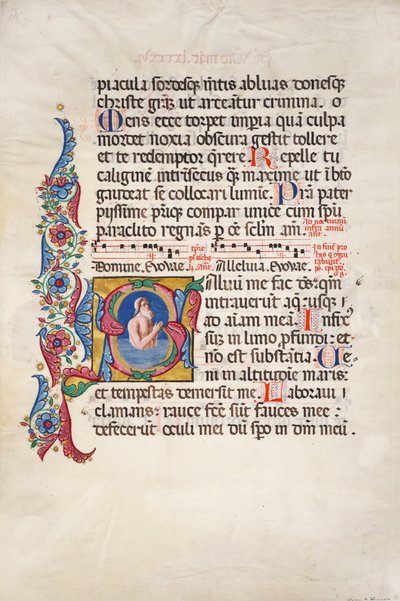 piacula sordesq mentis abluas donesq
christe gram ut arceantur crimina. o
Mens ecce torpet impia quam culpa
mordet noxia obscura gestit tollere
et te redemptor querere. Repelle tu
caliginem intrinsecus qm maxime ut in bto
gaudeat se collocari lumine. Presta pater
piissime patriq compar unice cum spu
paraclito regnans per oe sclm am
Domine. Evovae. Alleluia. Evovae.
Salvum me fac ds qm
intraverunt aque usq
ad aiam meam. Infixus
sus in limo profundi: et
non est substantia. Ve
ni in altitudinem maris:
et tempestas demersit me. Laboravi
clamans: rauce fce sunt fauces mee:
defecerunt oculi mei dum spo in dm meum.